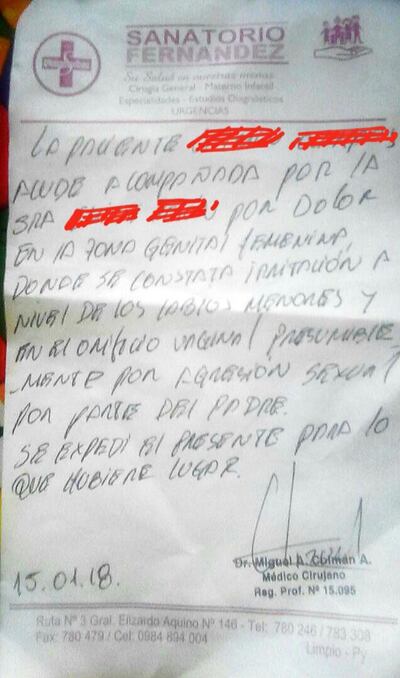 SANATORIO
FERNANDEZ
Su Salud en nuestras manos
Cirugía General - Materno Infantil
Especialidades - Estudios Diagnósticos
URGENCIAS
LA PACIENTE
ACUDE ACOMPAÑADA POR LA
SRA POR DOLOR
EN LA ZONA GENITAL FEMENINA,
DONDE SE CONSTATA IRRITACIÓN A
NIVEL DE LOS LABIOS MENORES Y
EN EL ORIFICIO VAGINAL PRESUMIBLE
-MENTE POR AGRESIÓN SEXUAL
POR PARTE DEL PADRE.
SE EXPEDI EL PRESENTE PARA LO
QUE HUBIERE LUGAR.
Dr. Miguel A. Colmán A.
Médico Cirujano
Reg. Prof. Nº 15.095
15.01.18.
Ruta Nº 3 Gral. Elizardo Aquino Nº 146 - Tel: 780 246 / 783 308
Fax: 780 479 / Cel: 0984 894 004
Limpio - Py